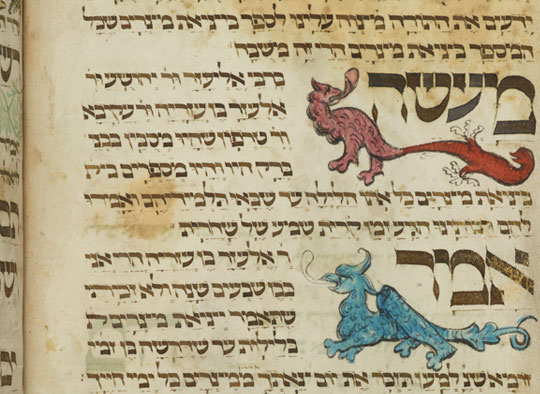 יודעים את התורה מצוה עלינו לספר ביציאת מצרים שכל
המספר ביציאת מצרים הרי זה משובח
מעשה ברבי אליעזר ור' יהושע ור'
אלעזר בן עזריה ור' עקיבא
ור' טרפון שהיו מסבין בבני
ברק והיו מספרים
ביציאת מצרים כל אותו הלילה עד שבאו תלמידיהם ואמרו
להם רבותינו הגיע זמן קרית שמע של שחרית
אמר ר' אלעזר בן עזריה הרי אני
כבן שבעים שנה ולא זכיתי
שתאמר יציאת מצרים
בלילות עד שדרשה בן
זומא שנ' למען תזכור את יום צאתך ממצרים כל ימי חייך